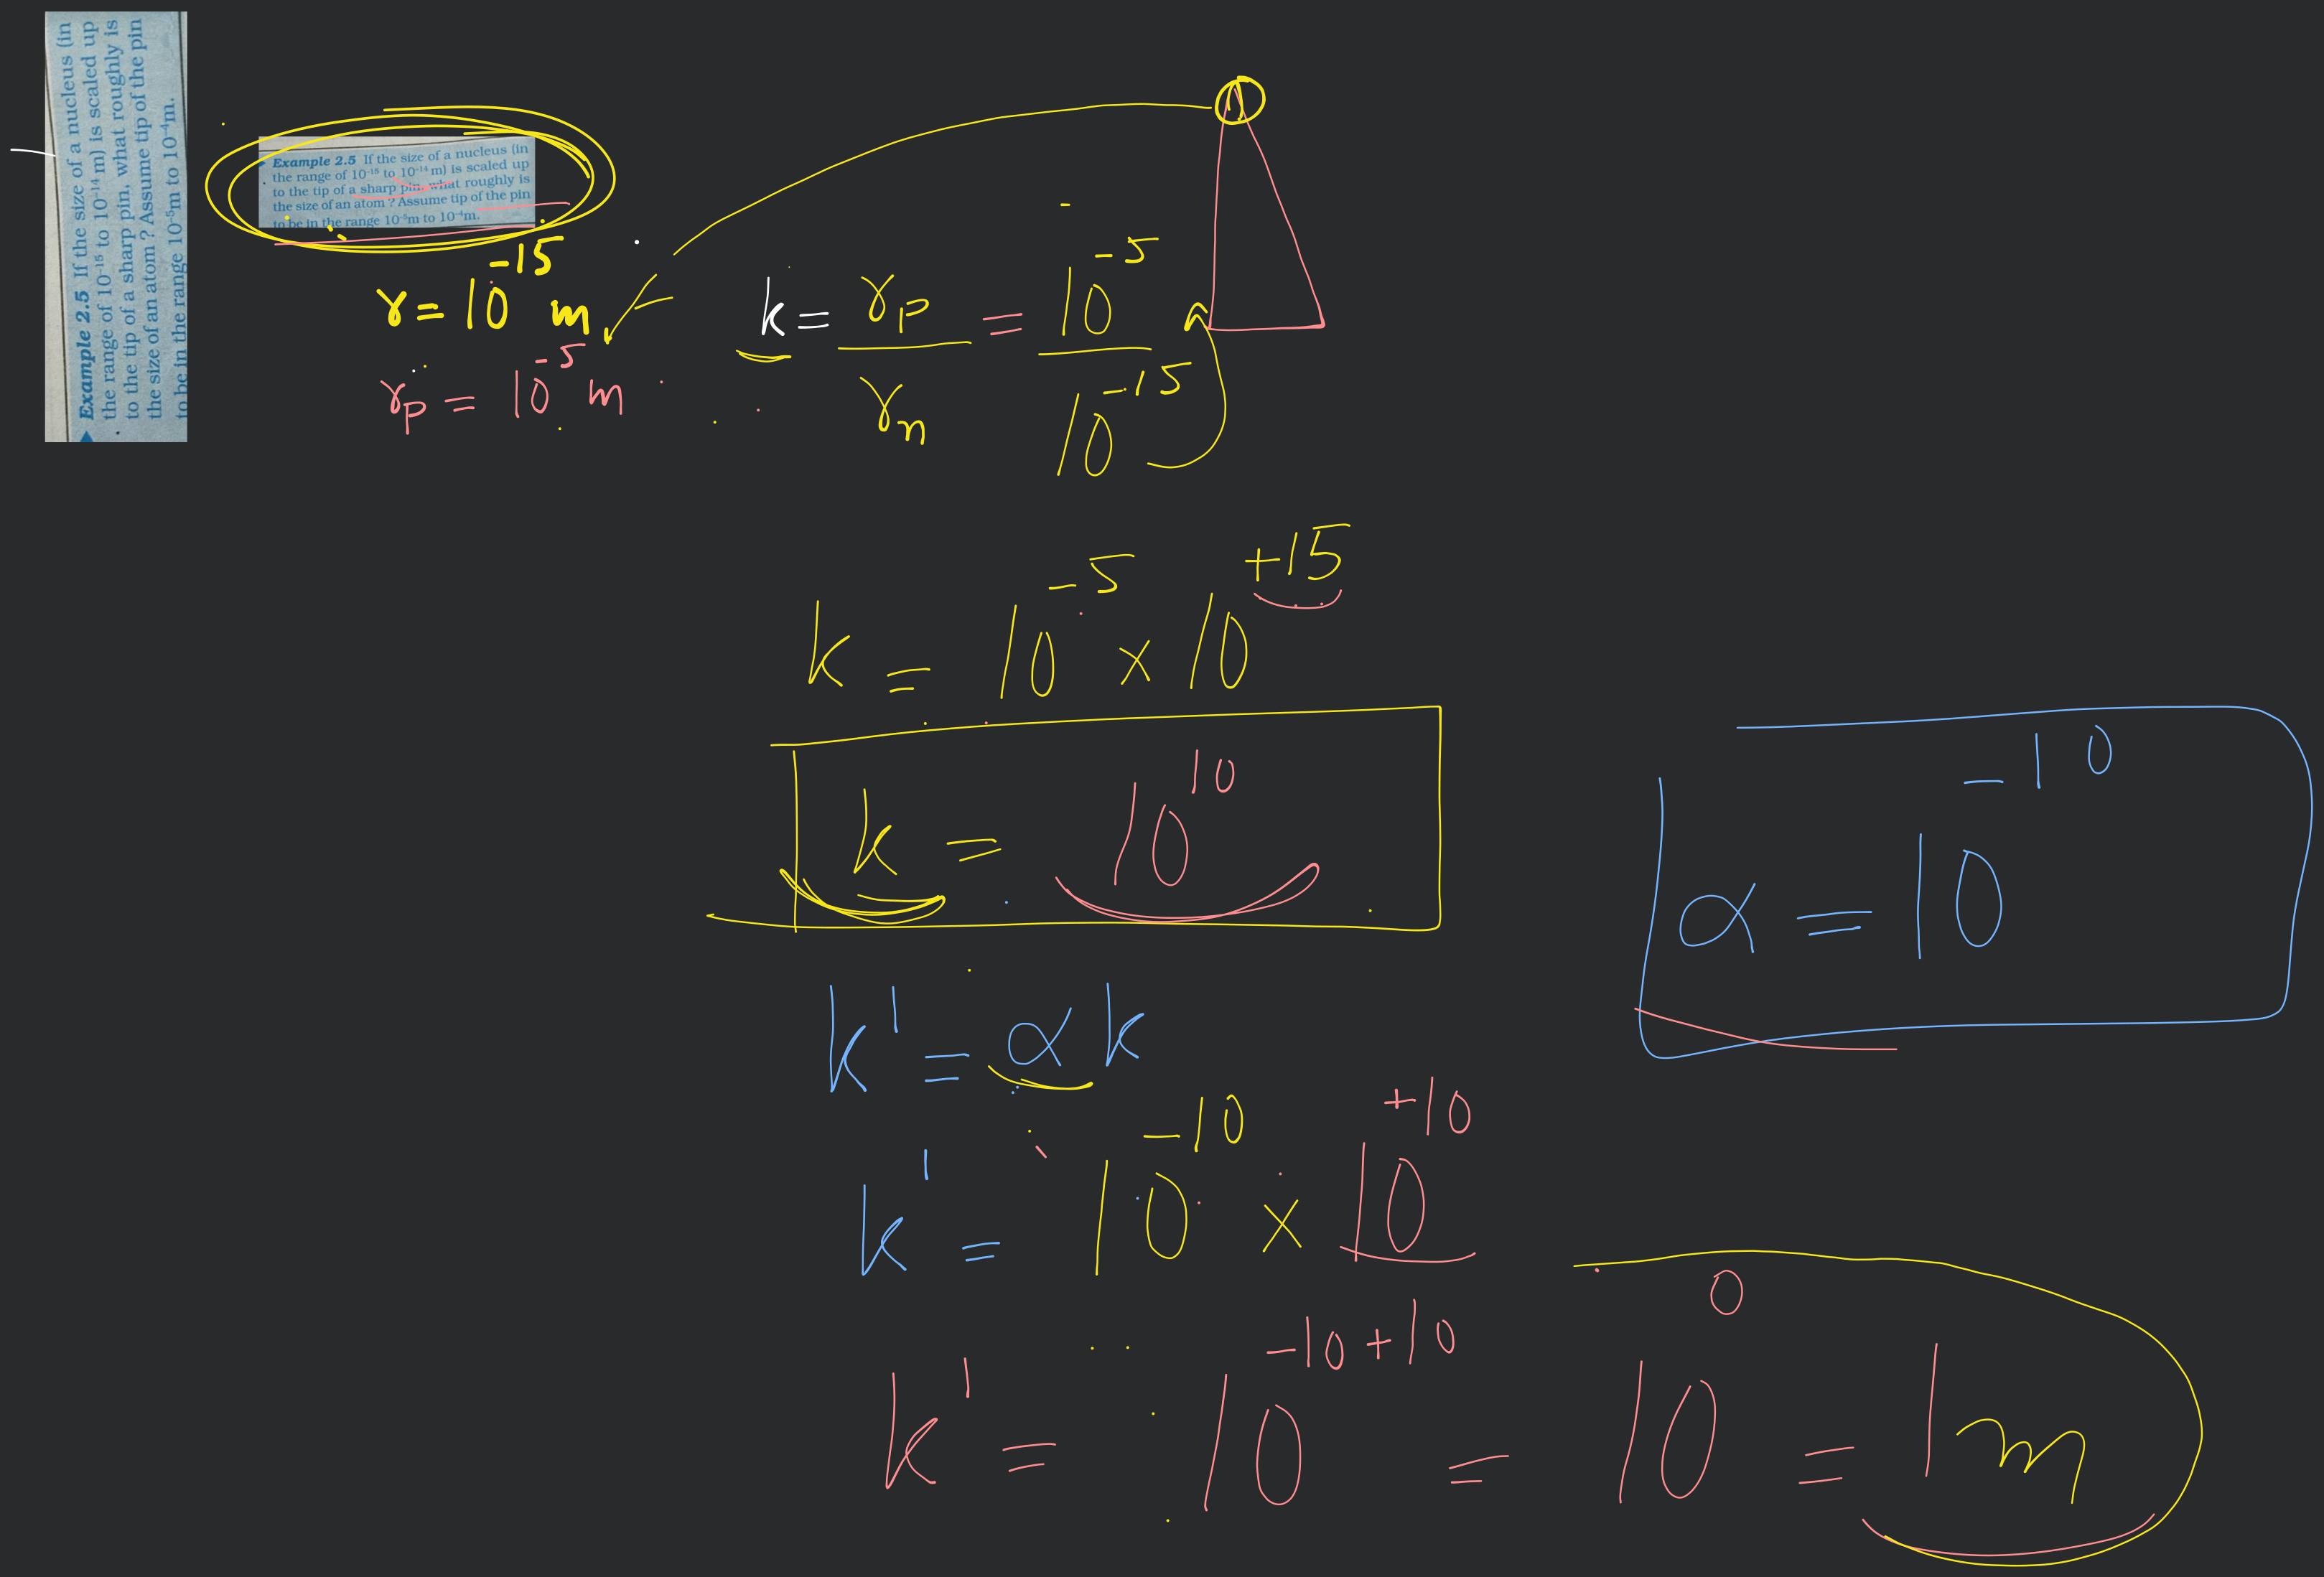 Example 2.5 If the size of a nucleus (in
the range of 10⁻¹⁵ to 10⁻¹⁴ m) is scaled up
to the tip of a sharp pin, what roughly is
the size of an atom ? Assume tip of the pin
to be in the range 10⁻⁵m to 10⁻⁴m.
Example 2.5 If the size of a nucleus (in
the range of 10⁻¹⁵ to 10⁻¹⁴ m) is scaled up
to the tip of a sharp pin, what roughly is
the size of an atom ? Assume tip of the pin
to be in the range 10⁻⁵m to 10⁻⁴m.
r = 10⁻¹⁵ m
r_p = 10⁻⁵ m
k = r_p / r_n = 10⁻⁵ / 10⁻¹⁵
k = 10⁻⁵ × 10⁺¹⁵
k = 10¹⁰
α = 10⁻¹⁰
k' = α k
k' = 10⁻¹⁰ × 10⁺¹⁰
k' = 10⁻¹⁰⁺¹⁰ = 10⁰ = 1 m